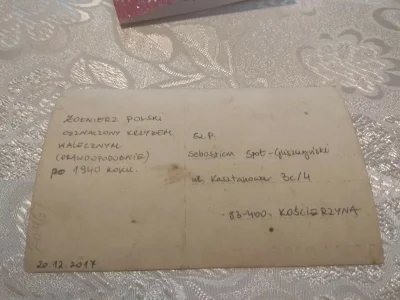 ŻOŁNIERZ POLSKI
ODZNACZONY KRZYŻEM
WALECZNYM
(PRAWDOPODOBNIE)
po 1940 ROKU.
Sz.P.
Sebastian
ul. Kasztanowa 3c/4
83-400, KOŚCIERZYNA
20.12.2017